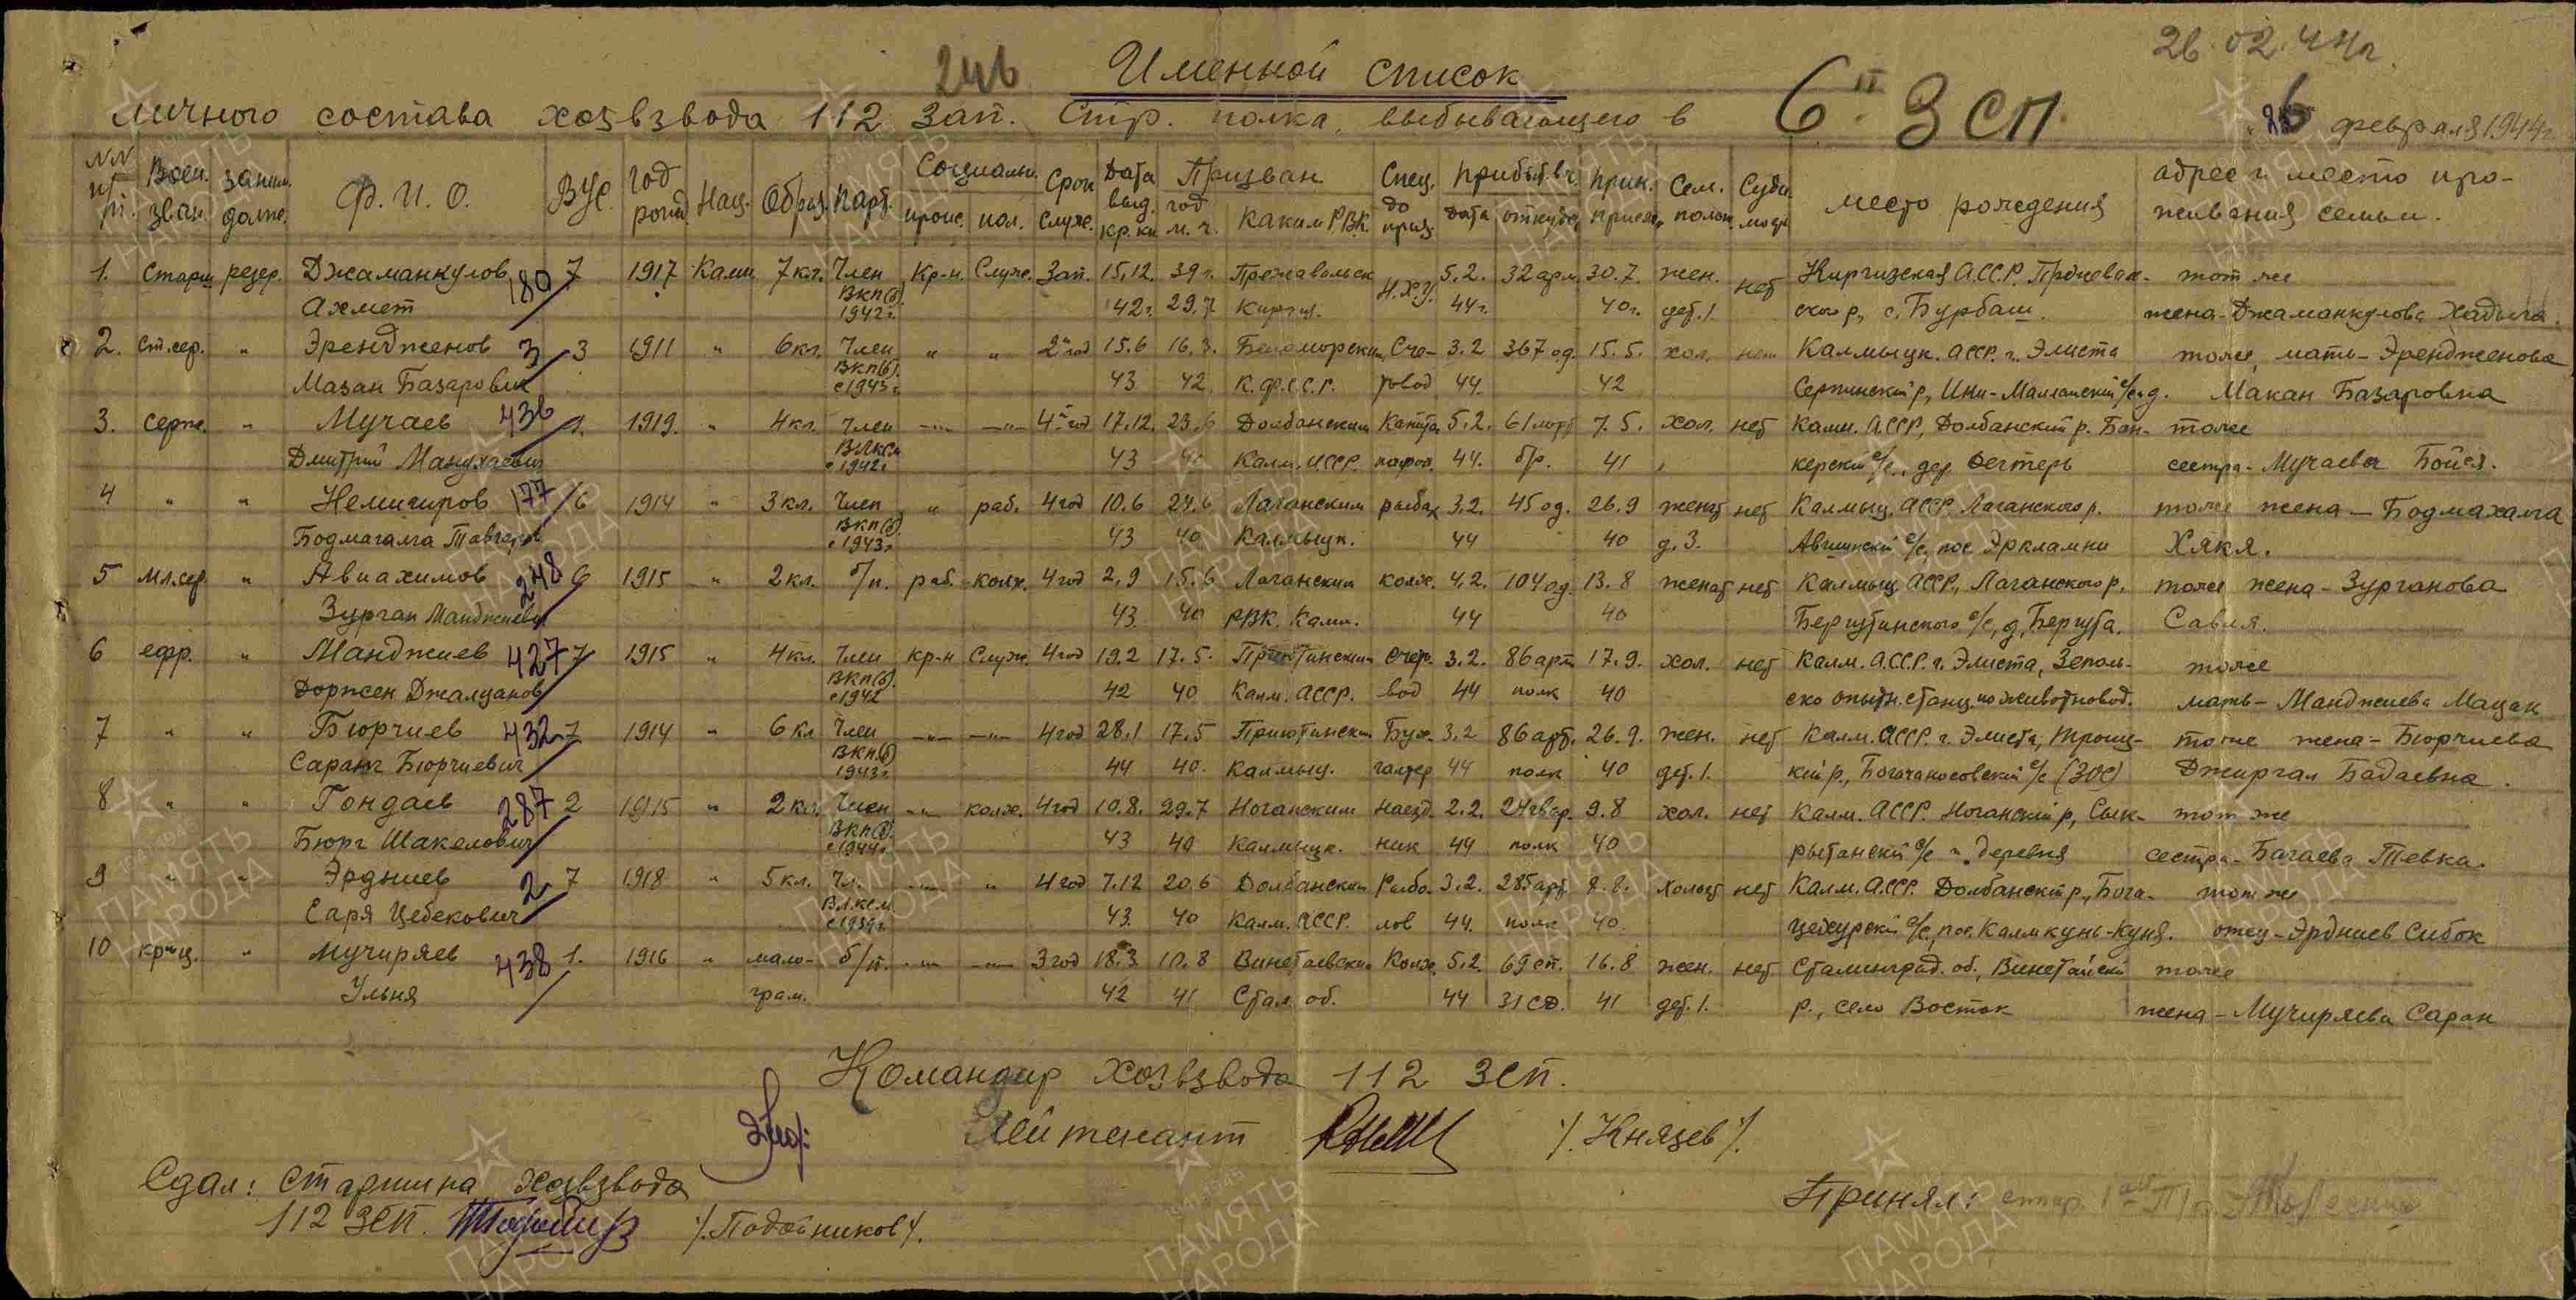 26.02.44г.
246 Именной список
личного состава хозвзвода 112 Зап. Стр. полка, выбывающего в 6й ЗСП. 26 февраля 1944г.
№№ п/п. Воен. зван. заним. долж. Ф. И. О. ВУС. год рожд. Нац. Образ. Парт. Социальн. проис. пол. Срок служ. Дата выд. кр. кн. Призван год м. ч. Каким РВК. Спец. до приз. Прибыл в ч. дата откуда Прин. присяг. Сем. полож. Суди мость место рождения адрес и место про-
живания семьи.
1. Старш резер. Джаманкулов 180 7 1917 Калм. 7кл. Член Кр-н. Служ. Зап. 15.12. 39г. Пржевальск Н.Х.У. 5.2. 32 арм. 30.7. жен. нет Киргизская АССР. Пржеваль- тот же
Ахмет ВКП(б). 1942г. 42г. 29.7 Киргиз. 44г. 40г. дет.1. ского р., с. Бурбаш. жена-Джаманкулова Хадыча.
2. Ст.сер. " Эрендженов 3 3 1911 " 6кл. Член " " 2й год 15.6 16.3. Беломорским Сче- 3.2 367 од. 15.5. хол. нет Калмыцк. АССР. г. Элиста тоже, мать-Эрендженова
Мазан Базарович ВКП(б). с1943г. 43 42. К.Ф.С.С.Р. товод 44. 42 Сарпинский р, с/с. Макан Базаровна
3. Серж. " Мучаев 436 1. 1919. " 4кл. Член -"- -"- 4й год 17.12. 23.6 Долбанским 5.2. 61 морт 7.5. хол. нет Калм. АССР, Долбанский р. Бан- тоже
Дмитрий ВЛКСМ с1942г. 43 40 Калм. АССР. 44. бр. 41 керский с/с., дер. сестра-Мучаева Бойся.
4 " " Немигиров 177 6 1914 " 3кл. Член " раб. 4год 10.6 24.6 Лаганским рыбак 3.2. 45 од. 26.9 женат нет Калмыц. АССР. Лаганского р. тоже жена-Бодмахалга
Бодмагалга ВКП(б) с1943г. 43 40 Калмыцк. 44 40 д.3. с/с, пос. Хякя.
5 Мл.сер. " Авиахимов 248 6 1915 " 2кл. б/п. раб. колх. 4год 2.9 15.6 Лаганским колх. 4.2. 104 од. 13.8 женат нет Калмыц. АССР., Лаганского р. тоже жена-Зурганова
Зурган Манджиевич 43. 40 РВК. Калм. 44 40 Бергутинского с/с, д. Бергута. Савля.
6 ефр. " Манджиев 427 7 1915 " 4кл. Член кр-н Служ. 4год 19.2 17.5. Приютинским Счет- 3.2. 86 арт. 17.9. хол. нет Калм. АССР. г. Элиста, тоже
Доржен Джалцанов ВКП(б). с1942 42 40 Калм. АССР. вод 44 полк 40 ско опытн. станц. по животновод. мать-Манджиева Мацак
7 " " Бюрчиев 432 7 1914 " 6кл Член -"- -"- 4год 28.1 17.5 Приютинским Бух- 3.2 86 арт. 26.9. жен. нет Калм. АССР. г. Элиста, Троиц- тоже жена-Бюрчиева
Саранг Бюрчиевич ВКП(б) 1943г. 44 40. Калмыц. галтер 44 полк 40 дет.1. кий р., с/с (ЗОС) Джиргал Бадаевна.
8 " " Гондаев 287 2 1915 " 2кл. Член -"- колх. 4год 10.8. 29.7 Ноганским наезд- 2.2. 24 гвар. 9.8 хол. нет Калм. АССР. Ноганский р, тот же
Бюрг Шакелович ВКП(б). с1944г. 43 40 Калмыцк. ник 44 полк 40 с/с деревня сестра-Багаева Тевка.
9 " " Эрдниев 2 7 1918 " 5кл. Чл. -"- " 4год 7.12 20.6 Долбанским Рыбо- 3.2. 285 арт. 8.8. холост нет Калм. АССР. Долбанский р., Бога- тот же
Саря Цебекович ВЛКСМ. с1939г. 43. 40 Калм. АССР. лов 44. полк 40. цехурский с/с, пос. Калмкунь-Куня. отец-Эрдниев Сибок
10 кр-ц. " Мучиряев 438 1. 1916 " мало- б/п. -"- -"- 3год 18.3. 10.8 Колх. 5.2. 69 сп. 16.8 жен. нет Сталинград. об., тоже
Ульня грам. 42 41 Стал. об. 44 31 СД. 41 дет.1. р., село Восток жена-Мучиряева Саран
Командир хозвзвода 112 ЗСП.
Лейтенант /. Князев /.
Сдал: Старшина хозвзвода
112 ЗСП. /. Подойников /.
Принял: стар.